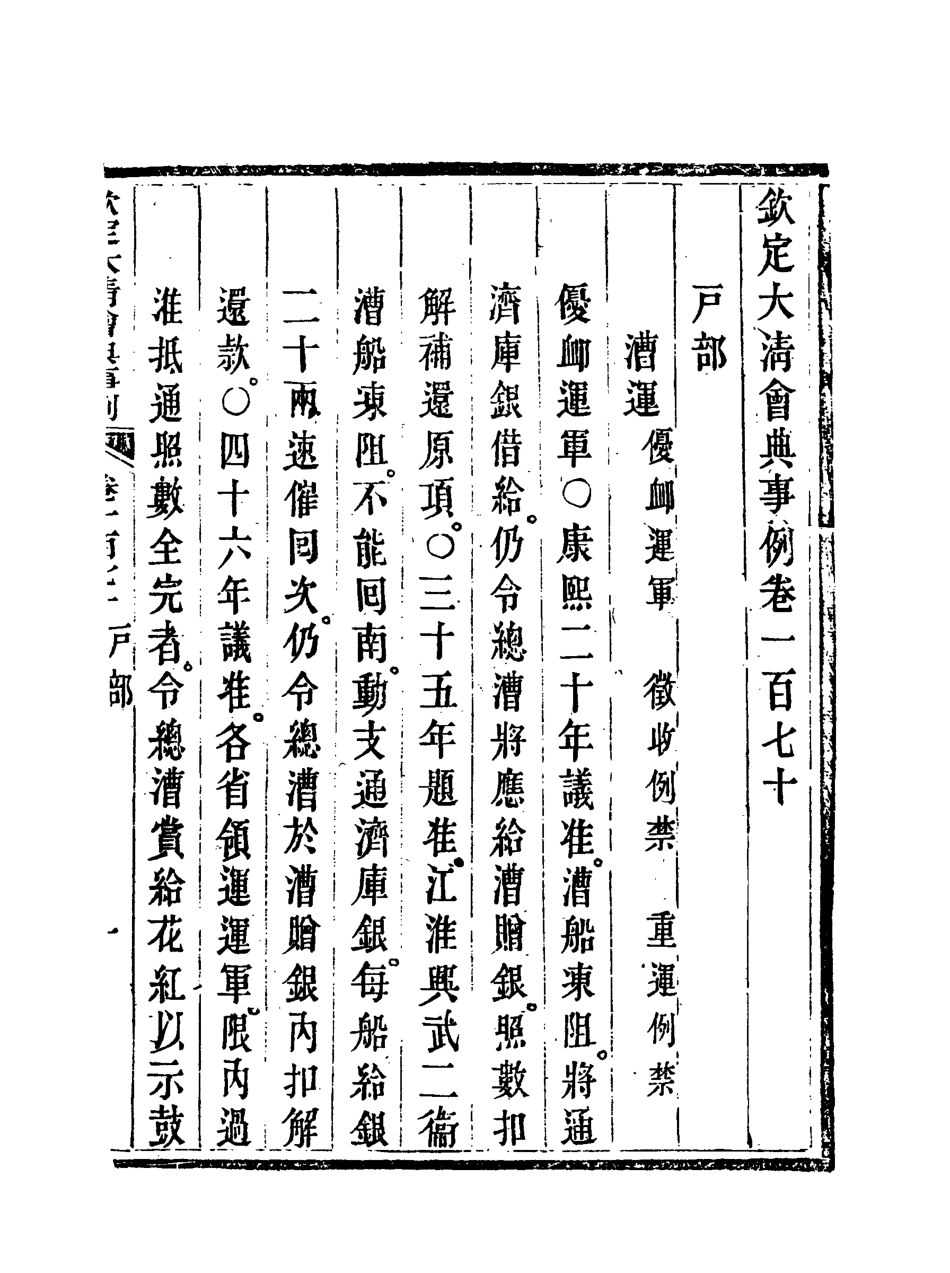 欽定大清會典事例卷一百七十
戸部
漕運 優䘏運軍 徵收例禁 重運例禁
優䘏運軍○康熙二十年議准。漕船凍阻。將通
濟庫銀借給。仍令總漕將應給漕贈銀。照數扣
解補還原項。○三十五年題准。江淮興武二衞
漕船凍阻。不能囘南。動支通濟庫銀。每船給銀
二十兩速催囘次。仍令總漕於漕贈銀內扣解
還款。○四十六年議准。各省領運運軍。限內過
淮抵通照數全完者。令總漕賞給花紅以示鼓
欽定大清會典事例 卷一百七十 戸部 一